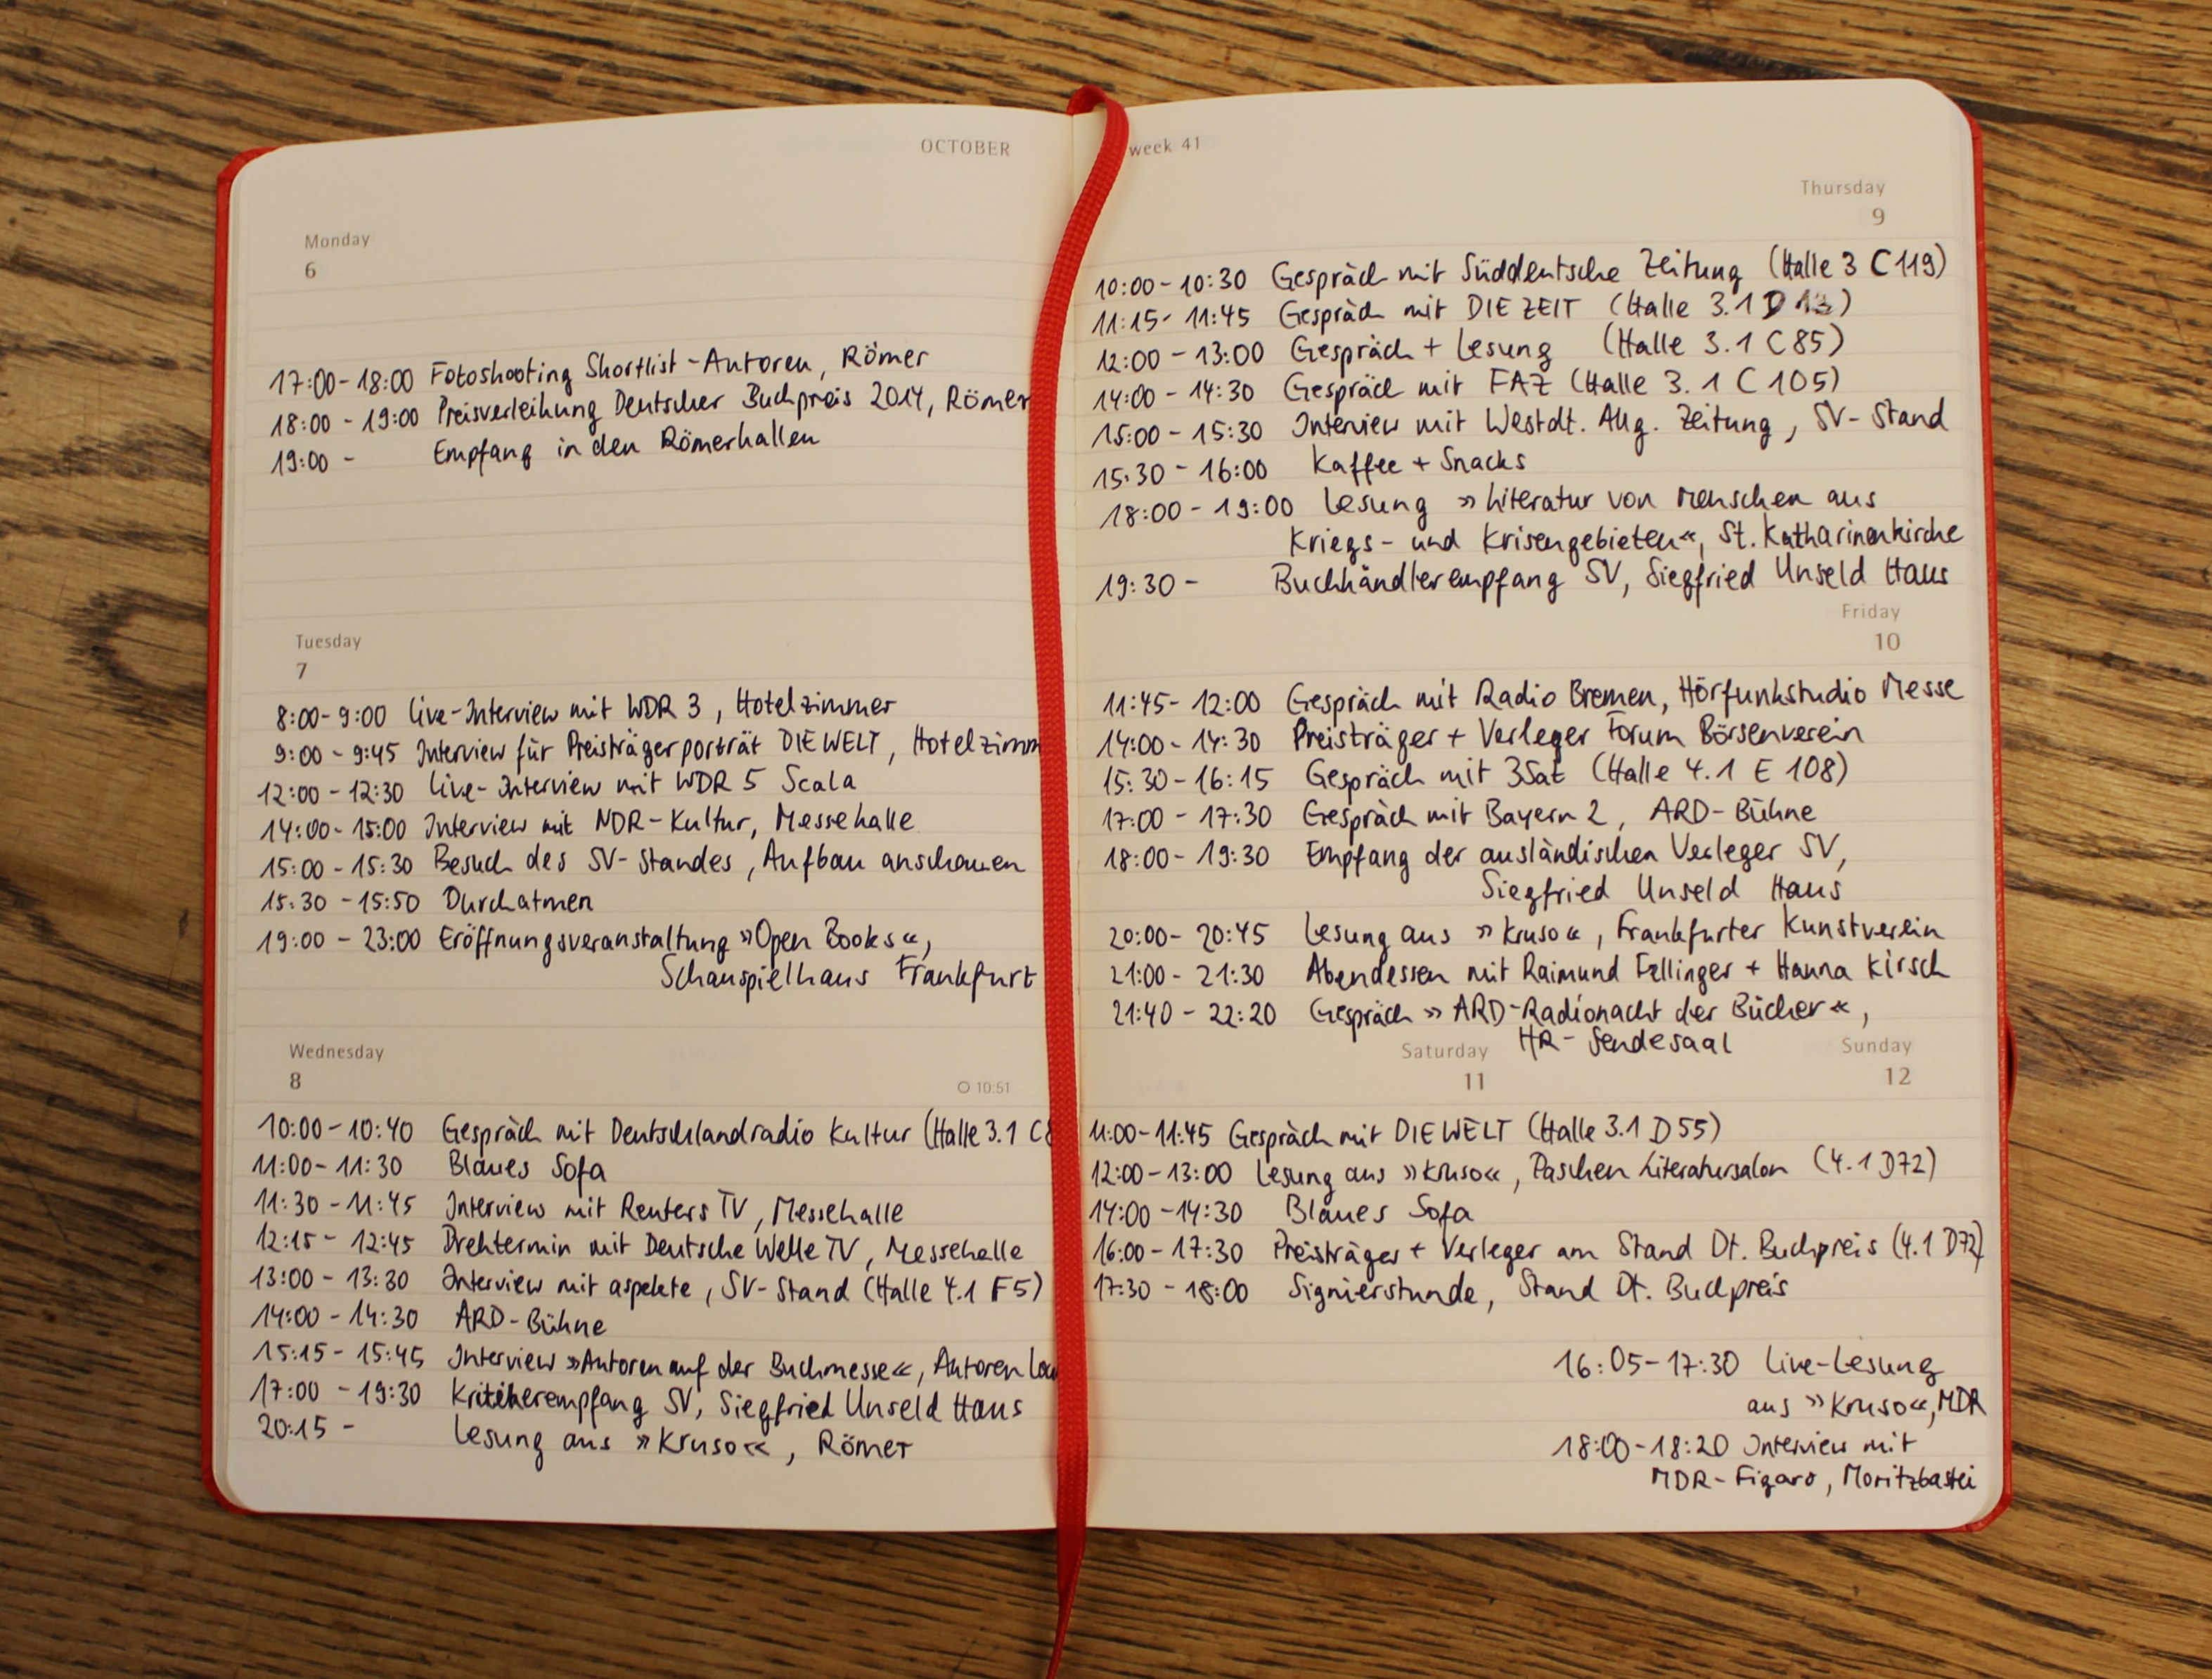 OCTOBER
Monday
6
17:00-18:00 Fotoshooting Shortlist-Autoren, Römer
18:00 - 19:00 Preisverleihung Deutscher Buchpreis 2014, Römer
19:00 - Empfang in den Römerhallen
Tuesday
7
8:00-9:00 Live-Interview mit WDR 3, Hotelzimmer
9:00 - 9:45 Interview für Preisträgerporträt DIE WELT, Hotelzimm
12:00 - 12:30 Live-Interview mit WDR 5 Scala
14:00-15:00 Interview mit NDR-Kultur, Messehalle
15:00 - 15:30 Besuch des SV-Standes, Aufbau anschauen
15:30 - 15:50 Durchatmen
19:00 - 23:00 Eröffnungsveranstaltung »Open Books«,
Schauspielhaus Frankfurt
Wednesday
8
10:51
10:00-10:40 Gespräch mit Deutschlandradio Kultur (Halle 3.1
11:00-11:30 Blaues Sofa
11:30 - 11:45 Interview mit Reuters TV, Messehalle
12:15 - 12:45 Drehtermin mit Deutsche Welle TV, Messehalle
13:00 - 13:30 Interview mit aspekte, SV-Stand (Halle 4.1 F5)
14:00 - 14:30 ARD-Bühne
15:15 - 15:45 Interview »Autoren auf der Buchmesse«, Autoren
17:00 - 19:30 Kritikerempfang SV, Siegfried Unseld Haus
20:15 - Lesung aus »Kruso«, Römer
week 41
Thursday
9
10:00-10:30 Gespräch mit Süddeutsche Zeitung (Halle 3 C 119)
11:15- 11:45 Gespräch mit DIE ZEIT (Halle 3.1 D
12:00 - 13:00 Gespräch + Lesung (Halle 3.1 C 85)
14:00 - 14:30 Gespräch mit FAZ (Halle 3.1 C 105)
15:00 - 15:30 Interview mit Westdt. Allg. Zeitung, SV-Stand
15:30 - 16:00 Kaffee + Snacks
18:00 - 19:00 Lesung »Literatur von Menschen aus
Kriegs- und Krisengebieten«, St. Katharinenkirche
19:30 - Buchhändlerempfang SV, Siegfried Unseld Haus
Friday
10
11:45- 12:00 Gespräch mit Radio Bremen, Hörfunkstudio Messe
14:00 - 14:30 Preisträger + Verleger Forum Börsenverein
15:30-16:15 Gespräch mit 3Sat (Halle 4.1 E 108)
17:00 - 17:30 Gespräch mit Bayern 2, ARD-Bühne
18:00- 19:30 Empfang der ausländischen Verleger SV,
Siegfried Unseld Haus
20:00- 20:45 Lesung aus »Kruso«, Frankfurter Kunstverein
21:00 - 21:30 Abendessen mit Raimund Fellinger + Hanna Kirsch
21:40 - 22:20 Gespräch »ARD-Radionacht der Bücher«,
HR-Sendesaal
Saturday
11
11:00-11:45 Gespräch mit DIE WELT (Halle 3.1 D 55)
12:00-13:00 Lesung aus »Kruso«, Paschen Literatursalon (4.1 D72)
14:00 - 14:30 Blaues Sofa
16:00-17:30 Preisträger + Verleger am Stand Dt. Buchpreis (4.1 D72)
17:30 - 18:00 Signierstunde, Stand Dt. Buchpreis
Sunday
12
16:05-17:30 Live-Lesung
aus »Kruso«, MDR
18:00-18:20 Interview mit
MDR-Figaro, Moritzbastei